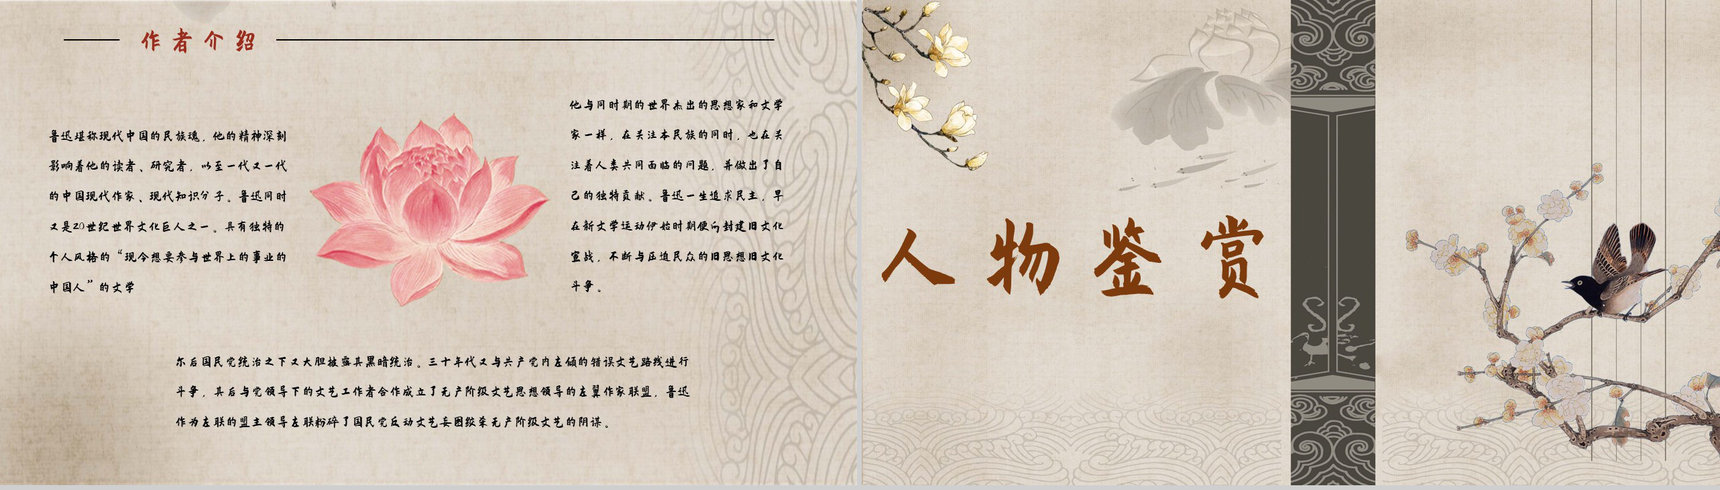 作者介绍
鲁迅堪称现代中国的民族魂，他的精神深刻
影响着他的读者、研究者，以至一代又一代
的中国现代作家、现代知识分子。鲁迅同时
又是20世纪世界文化巨人之一。具有独特的
个人风格的“现今想要参与世界上的事业的
中国人”的文学
他与同时期的世界杰出的思想家和文学
家一样，在关注本民族的同时，也在关
注着人类共同面临的问题，并做出了自
己的独特贡献。鲁迅一生追求民主，早
在新文学运动伊始时期便向封建旧文化
宣战，不断与压迫民众的旧思想旧文化
斗争。
尔后国民党统治之下又大胆披露其黑暗统治。三十年代又与共产党内左倾的错误文艺路线进行
斗争，其后与党领导下的文艺工作者合作成立了无产阶级文艺思想领导的左翼作家联盟，鲁迅
作为左联的盟主领导左联粉碎了国民党反动文艺妄图绞杀无产阶级文艺的阴谋。
人物鉴赏